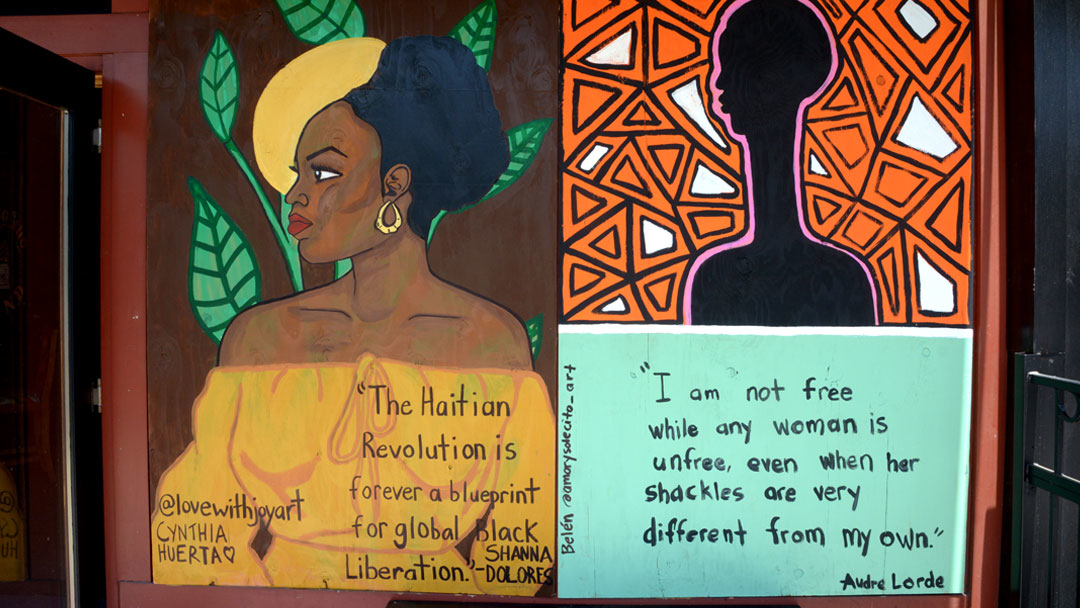 "The Haitian
Revolution is
forever a blueprint
for global Black
Liberation."-SHANNA
DOLORES
@lovewithjoyart
CYNTHIA
HUERTA♡
Belén @amorysolecito_art
"I am not free
while any woman is
unfree, even when her
shackles are very
different from my own."
Audre Lorde